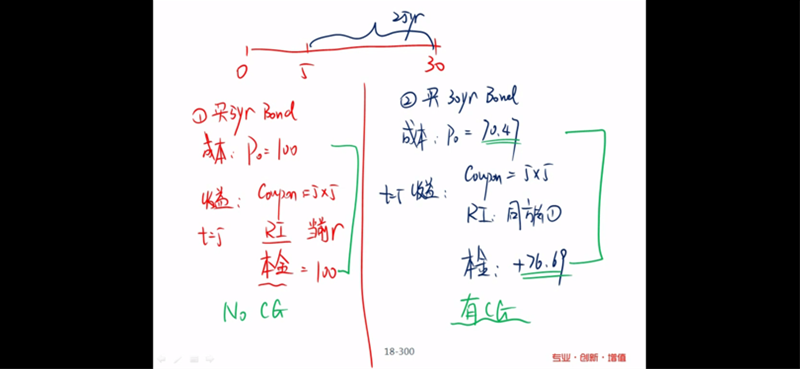 25yr
0 5 30
① 买5yr Bond
成本: P₀=100
收益: Coupon=5×5
t=5 RI 当前r
本金 = 100
No CG
② 买 30yr Bond
成本: P₀ = 70.47
t=5 收益: Coupon = 5×5
RI: 同方案①
本金: +76.69
有CG
18-300
专业·创新·增值